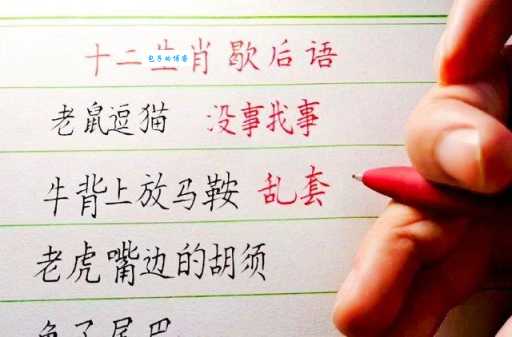 十二生肖歇后语
老鼠逗猫 没事找事
牛背上放马鞍 乱套
老虎嘴边的胡须
兔子尾巴